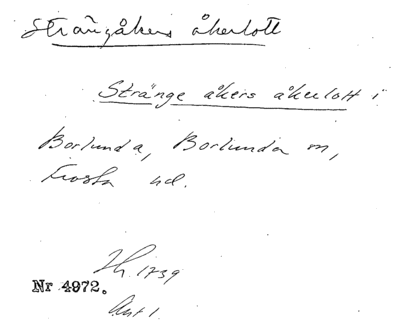 Strängåkers åkerlott
Stränge åkers åkerlott i
Borlunda, Borlunda m,
Frosta hd.
Jh. 1739
Nr 4972.
Akt 1